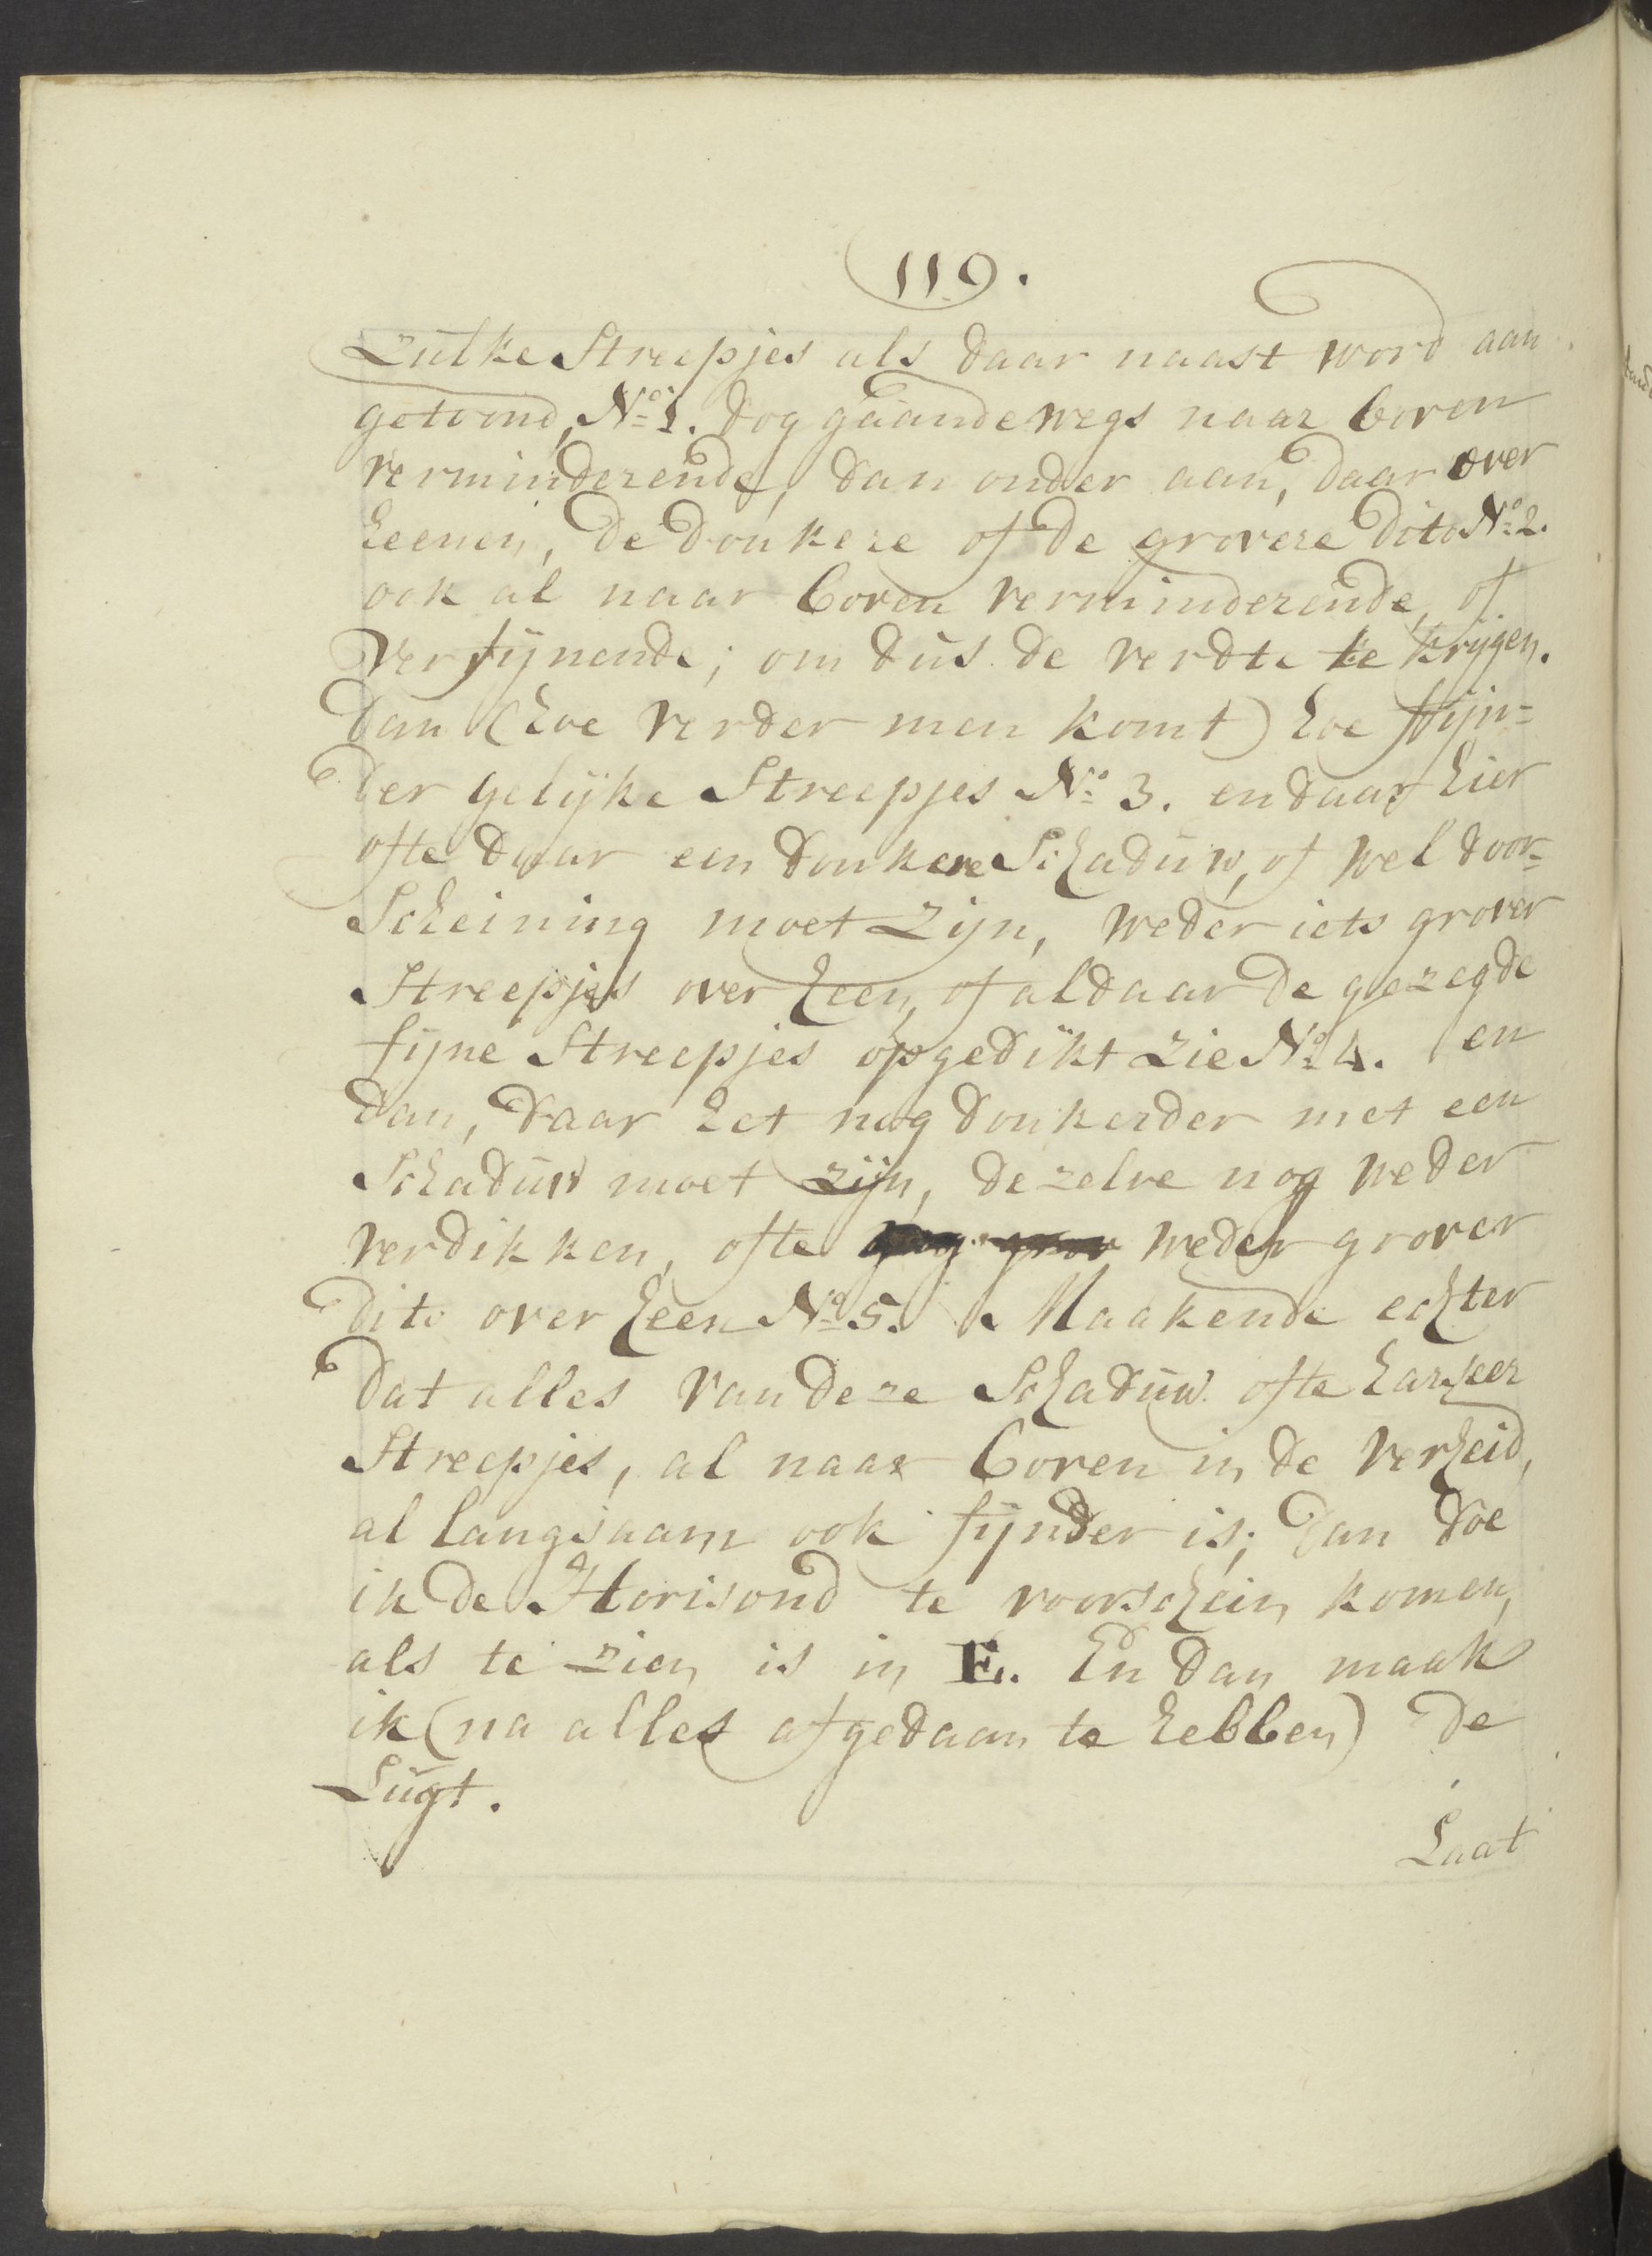 119.
Zulke Streepjes als daar naast word aan
getoond, No. 1. dog gaande wegs naar boven
verminderende, dan onder aan, daar over
heenen, de donkere of de grovere dito No. 2.
ook al naar boven verminderende, of
verfijnende; om dus de verdte te krijgen.
Dan (hoe verder men komt) hoe fijn=
der gelijke Streepjes No. 3. en daar hier
ofte daar een donkere Schaduw, of wel door=
Scheining moet zijn, weder iets grover
Streepjes over heen, of aldaar de gezegde
fijne Streepjes opgedikt zie No. 4. en
dan, daar het nog donkerder met een
Schaduw moet zijn, dezelve nog weder
verdikken, ofte weder grover
dito over heen No. 5. Maakende echter
dat alles van deze Schaduw ofte harseer
Streepjes, al naar boven in de verheid,
al langsaam ook fijnder is; dan doe
ik de Horisond te voorschein komen,
als te zien is in E. En dan maak
ik (na alles afgedaan te hebben) de
Lugt.
Laat